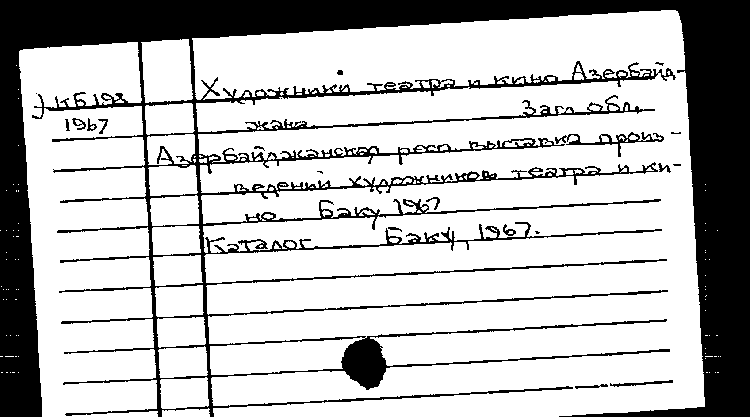 КБ193 Художники театра и кино Азербайд-
1967 жана. Загл. обл.
Азербайджанская респ. выставка произ-
ведений художников театра и ки-
но. Баку 1967
Каталог. Баку, 1967.